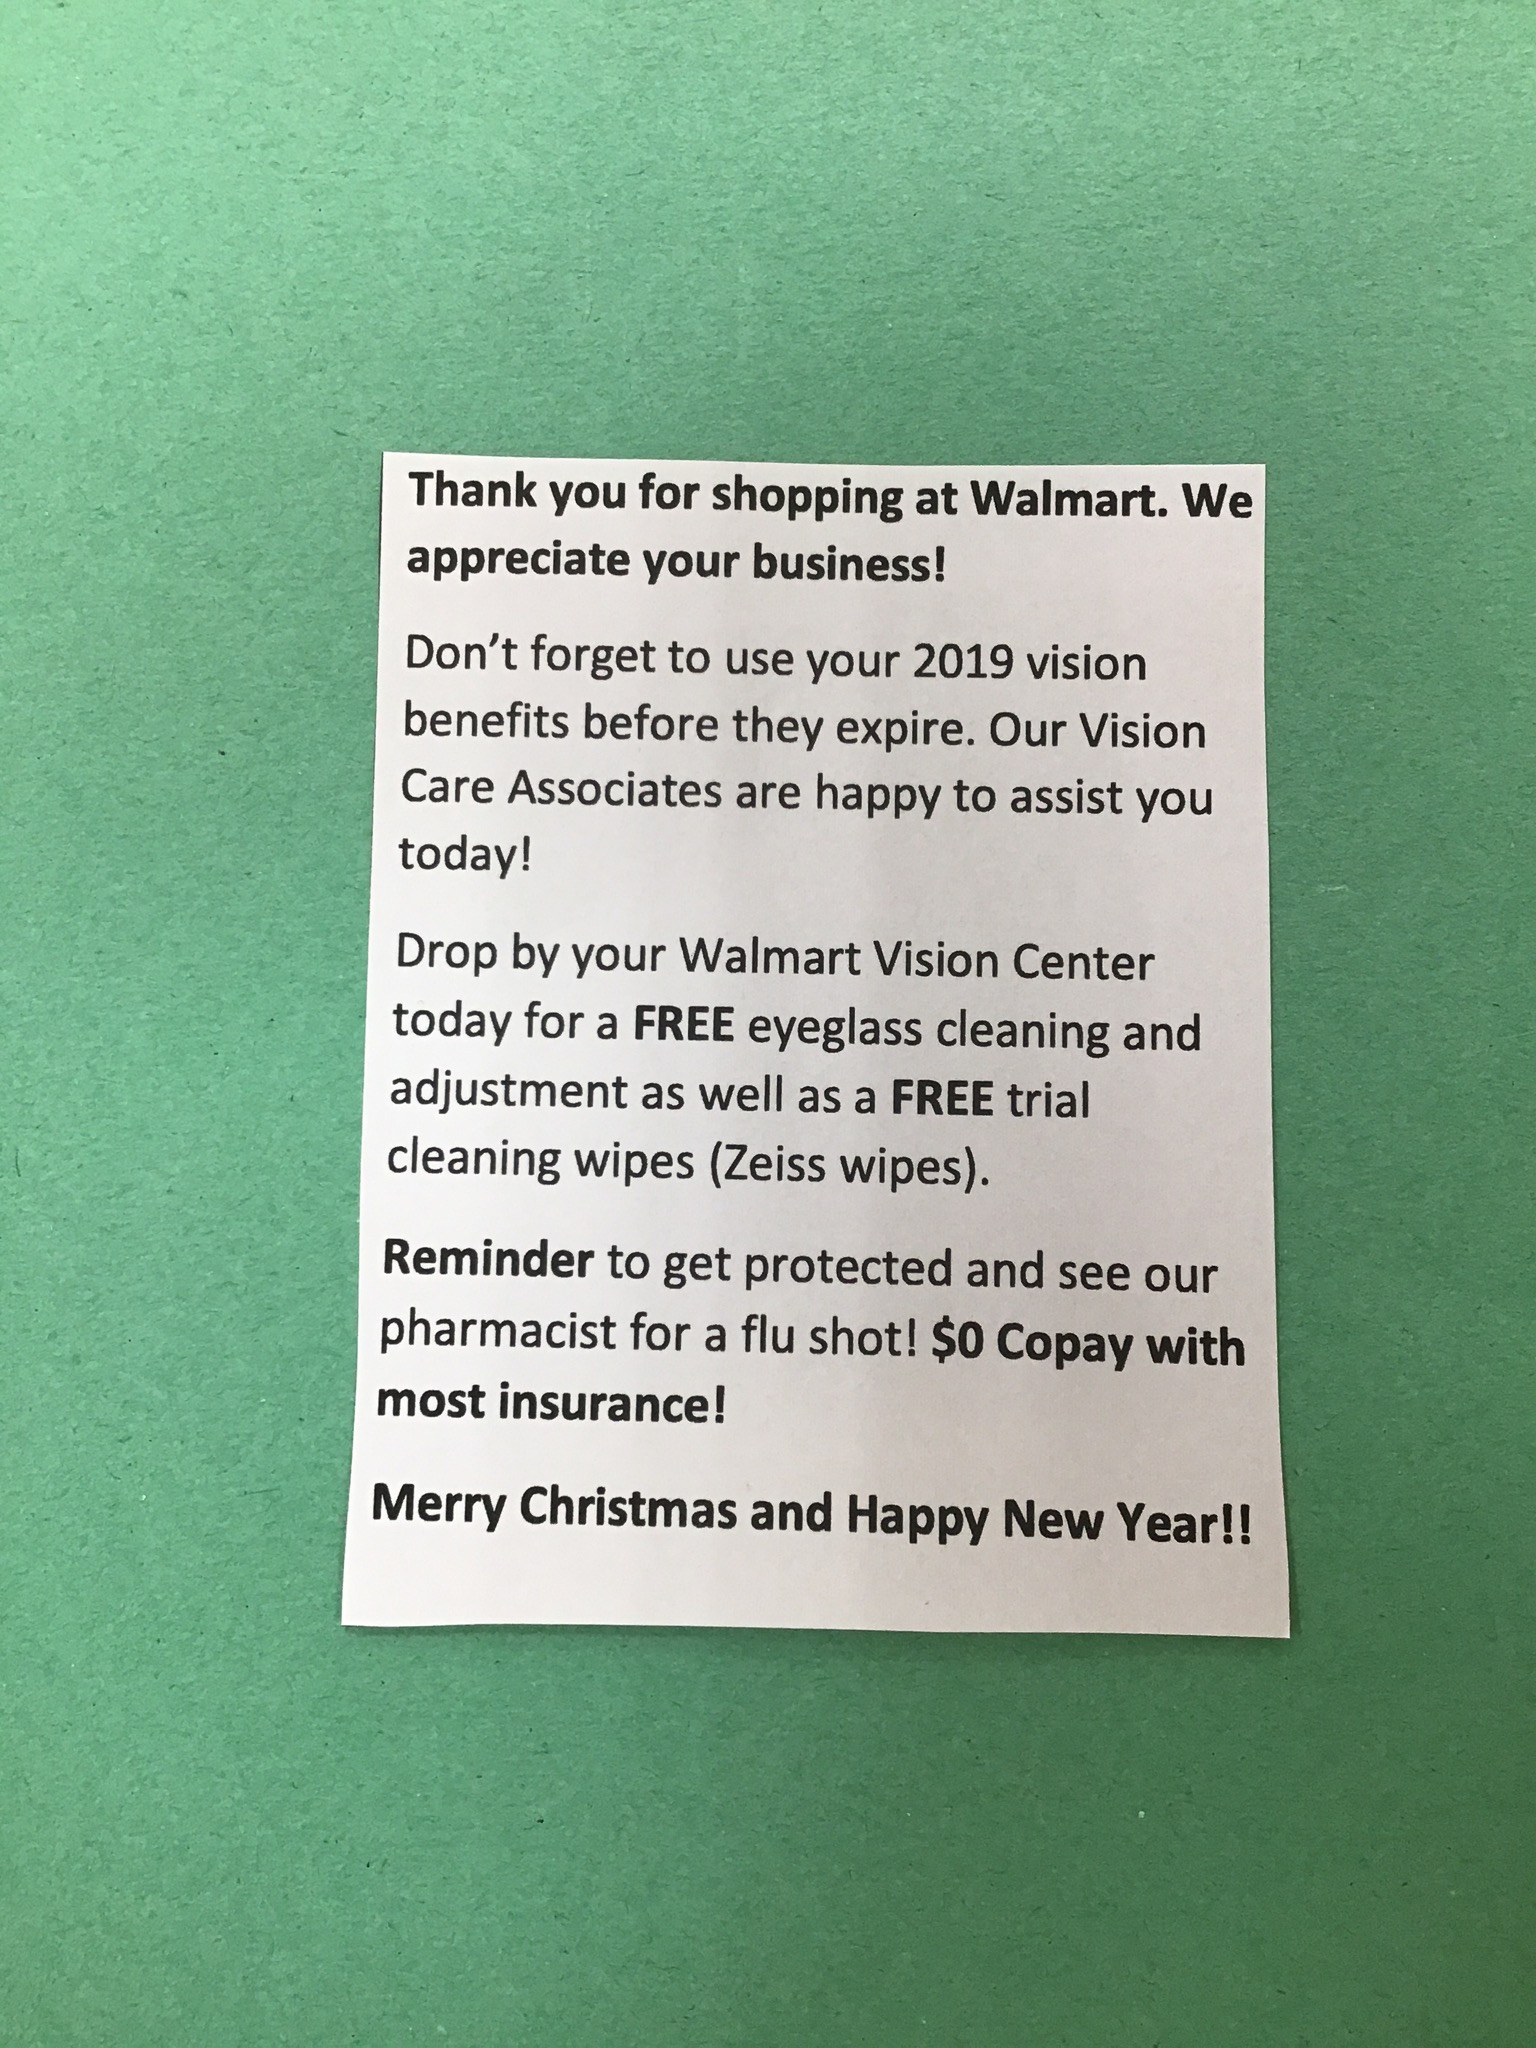 Thank you for shopping at Walmart. We
appreciate your business!
Don’t forget to use your 2019 vision
benefits before they expire. Our Vision
Care Associates are happy to assist you
today!
Drop by your Walmart Vision Center
today for a FREE eyeglass cleaning and
adjustment as well as a FREE trial
cleaning wipes (Zeiss wipes).
Reminder to get protected and see our
pharmacist for a flu shot! $0 Copay with
most insurance!
Merry Christmas and Happy New Year!!